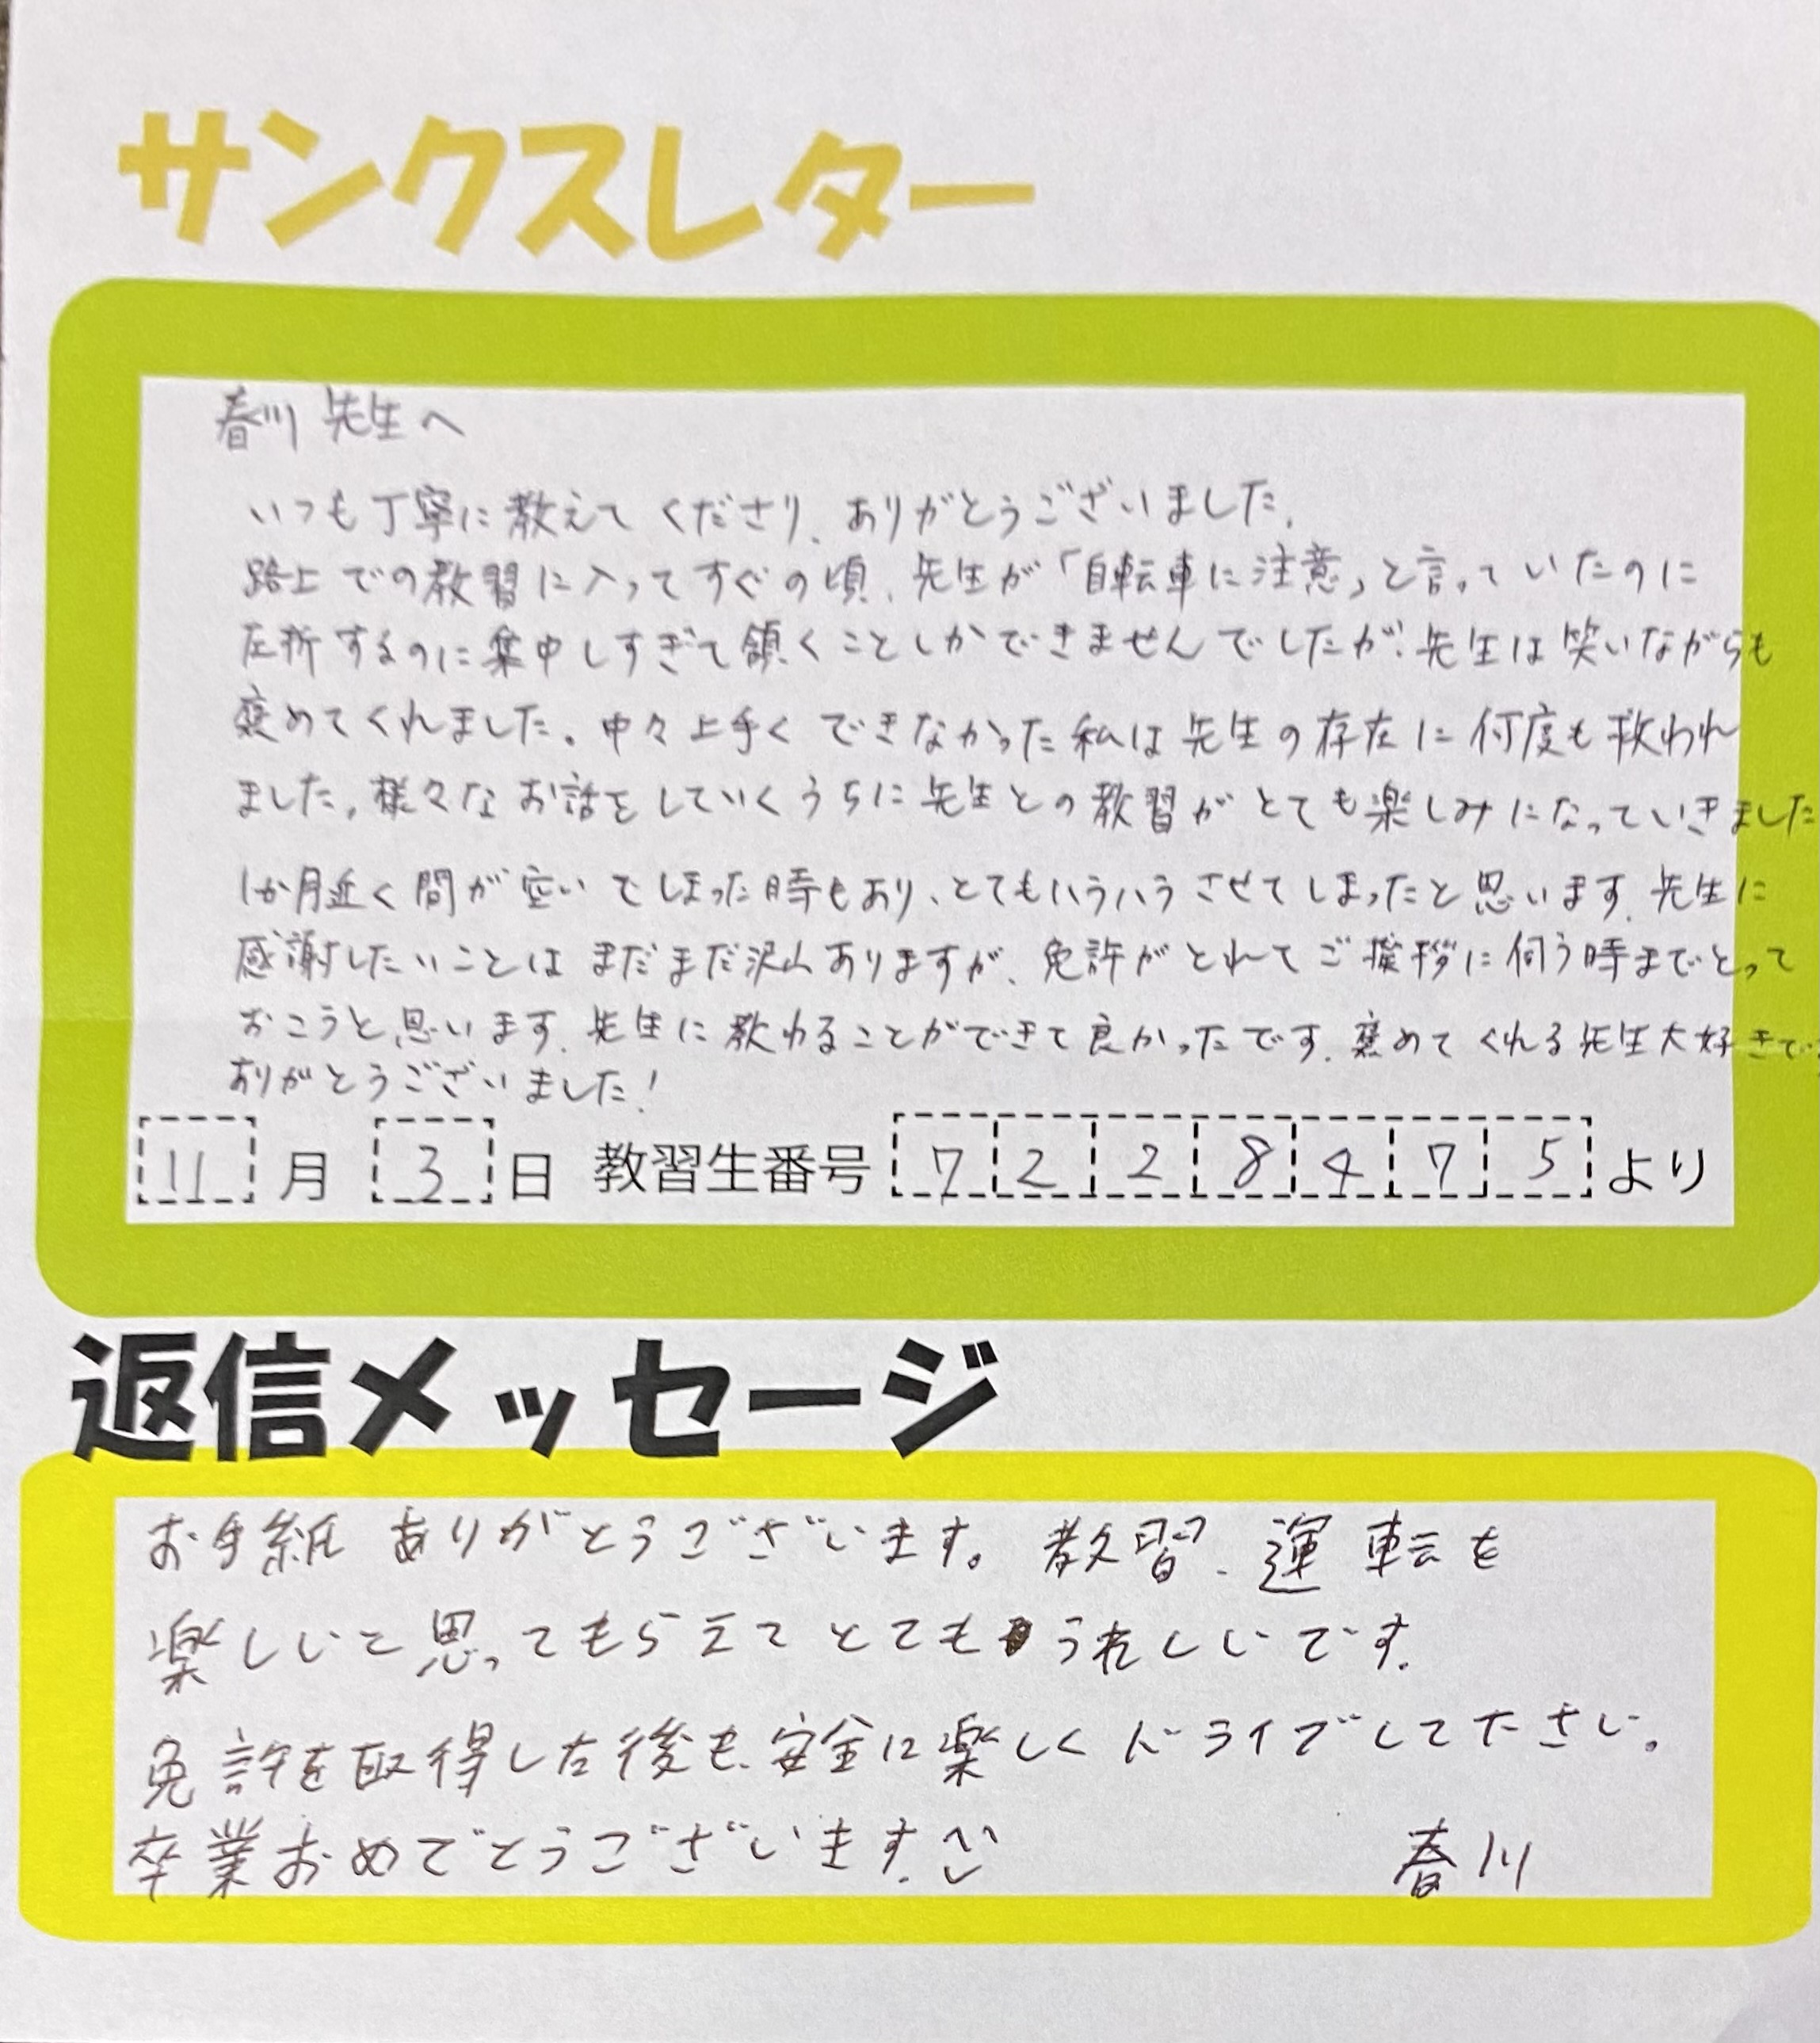 サンクスレター
春川先生へ
いつも丁寧に教えてくださり、ありがとうございました。
路上での教習に入ってすぐの頃、先生が「自転車に注意」と言っていたのに
左折するのに集中しすぎて頷くことしかできませんでしたが、先生は笑いながらも
褒めてくれました。中々上手くできなかった私は先生の存在に何度も救われ
ました。様々なお話をしていくうちに先生との教習がとても楽しみになっていきました
1か月近く間が空いてしまった時もあり、とてもハラハラさせてしまったと思います。先生に
感謝したいことはまだまだ沢山ありますが、免許がとれてご挨拶に伺う時までとって
おこうと思います。先生に教わることができて良かったです。褒めてくれる先生大好きで
ありがとうございました!
11月3日 教習生番号 7228475より
返信メッセージ
お手紙ありがとうございます。教習、運転を
楽しいと思ってもらえてとてもうれしいです。
免許を取得した後も、安全に楽しくドライブして下さい。
卒業おめでとうございます。
春川